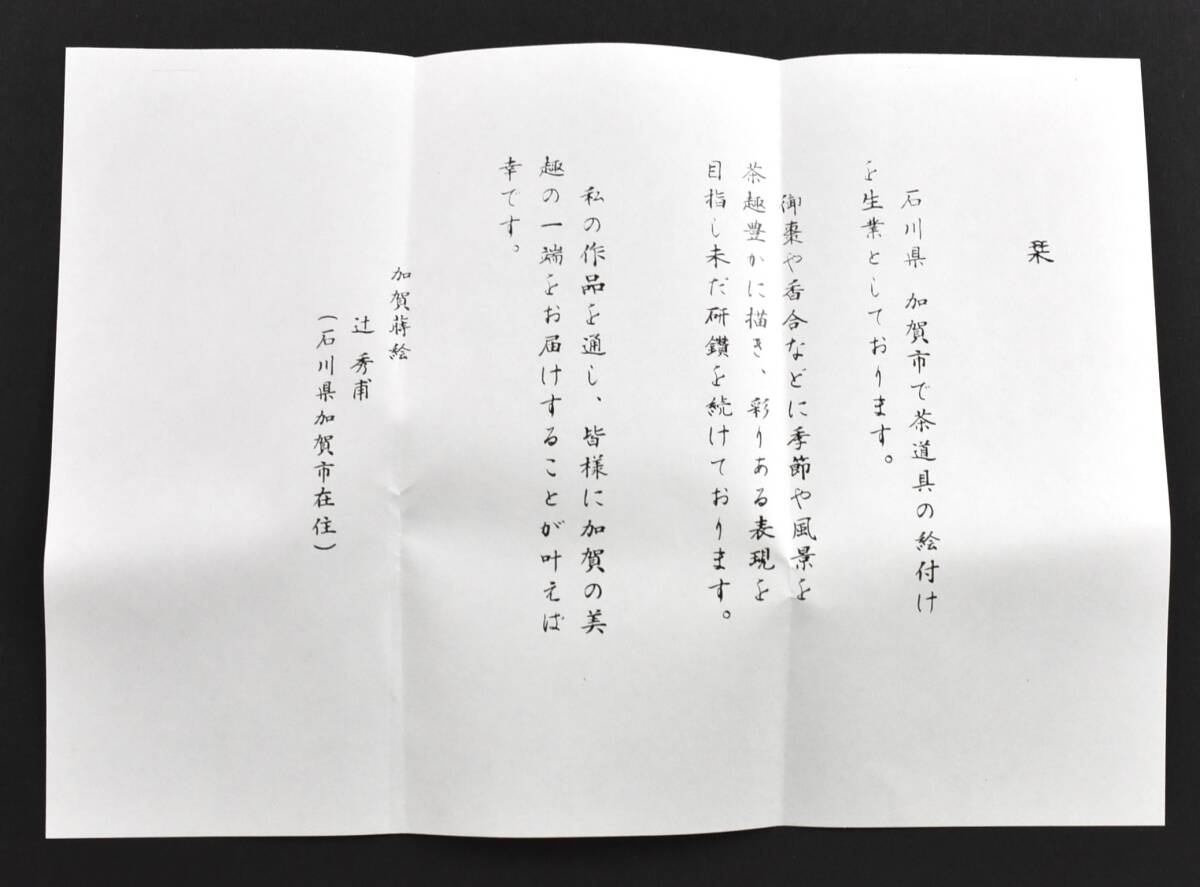 栞
石川県 加賀市で茶道具の絵付け
を生業としております。
御棗や香合などに季節や風景を
茶趣豊かに描き、彩りある表現を
目指し未だ研鑽を続けております。
私の作品を通し、皆様に加賀の美
趣の一端をお届けすることが叶えば
幸です。
加賀蒔絵
辻 秀甫
(石川県加賀市在住)